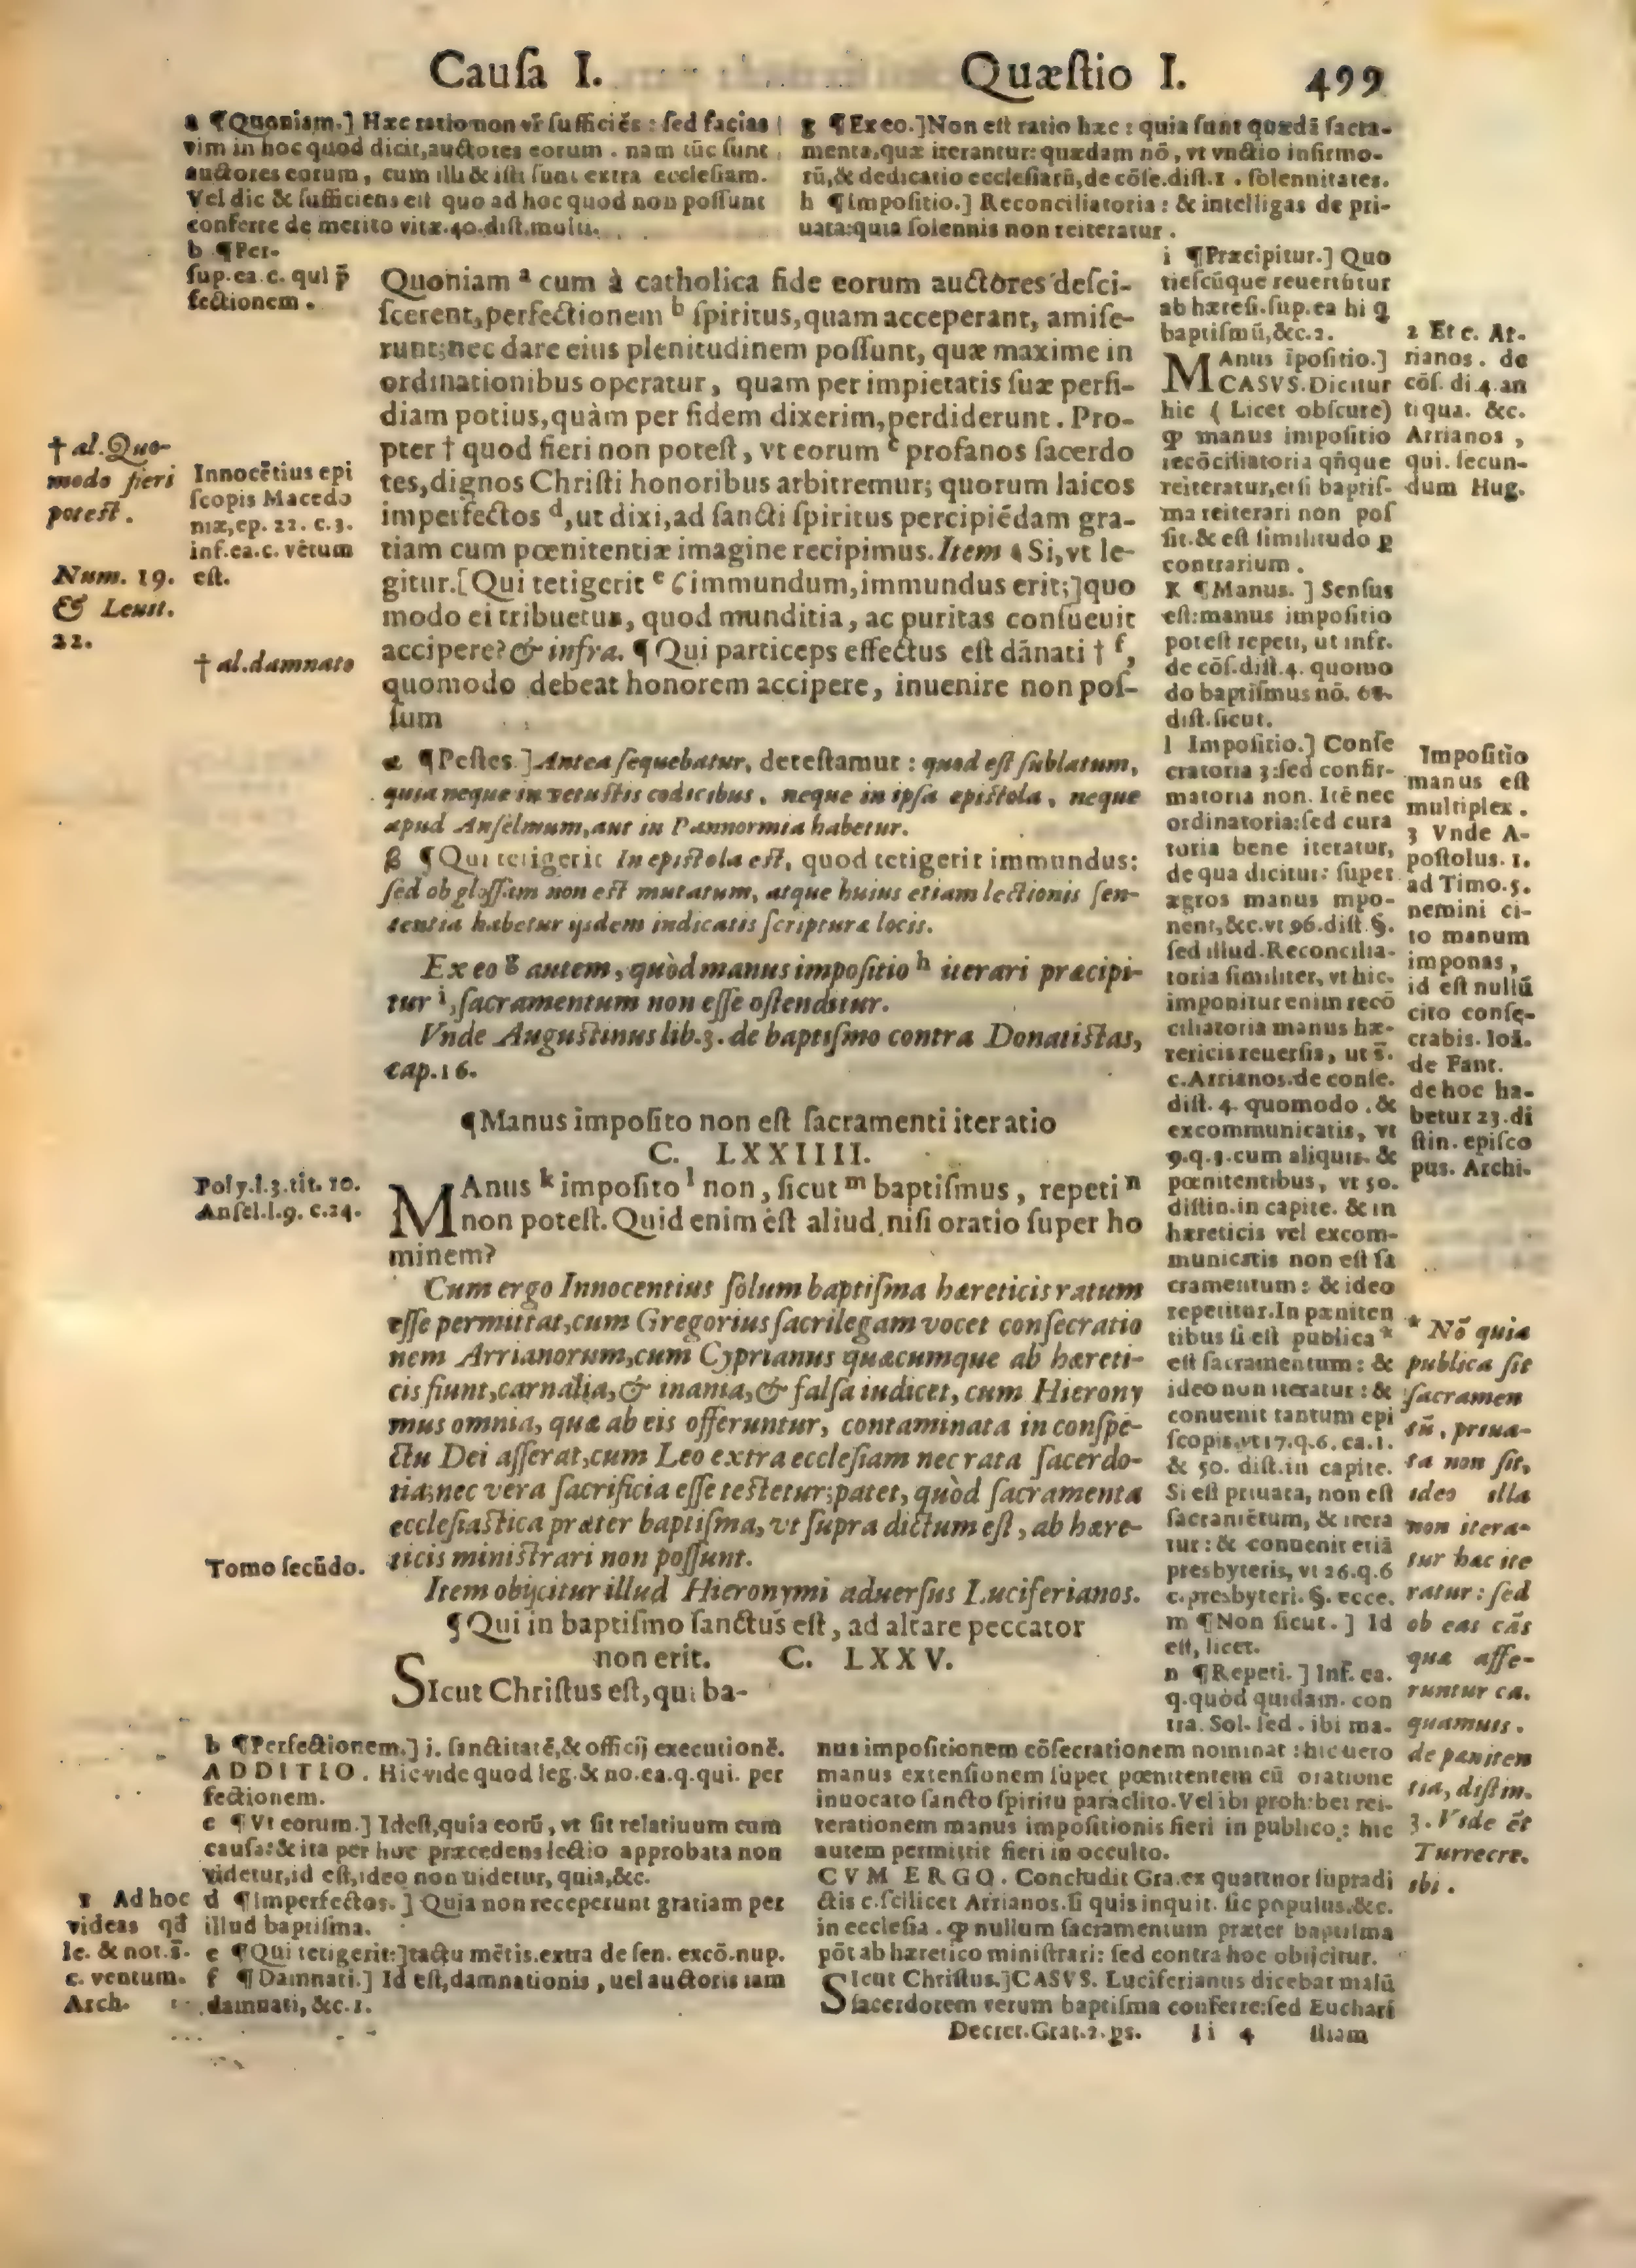 Causa I. Quæſtio I. 499
a ¶Quoniam.] Hæc ratio non vr̄ ſufficiēs : ſed facias
vim in hoc quod dicit,auctores eorum . nam tūc ſunt
auctores eorum, cum illi & iſti ſunt extra eccleſiam.
Vel dic & ſufficiens eſt quo ad hoc quod non poſſunt
conferre de merito vitæ.40.diſt.multi.
b ¶Per-
ſup.ea.c. qui p̄
fectionem .
g ¶Ex eo.]Non eſt ratio hæc : quia ſunt quædā ſacra-
menta,quæ iterantur: quædam nō, vt vnctio infirmo-
rū,& dedicatio eccleſiarū,de cōſe.diſt.1 . ſolennitates.
h ¶Impoſitio.] Reconciliatoria : & intelligas de pri-
uata:quia ſolennis non reiteratur .
Quoniam a cum à catholica fide eorum auctores deſci-
ſcerent,perfectionem b ſpiritus,quam acceperant, amiſe-
runt;nec dare eius plenitudinem poſſunt, quæ maxime in
ordinationibus operatur, quam per impietatis ſuæ perfi-
diam potius,quàm per fidem dixerim,perdiderunt. Pro-
pter † quod fieri non poteſt, vt eorum c profanos ſacerdo
tes,dignos Chriſti honoribus arbitremur; quorum laicos
imperfectos d,ut dixi,ad ſancti ſpiritus percipiēdam gra-
tiam cum pœnitentiæ imagine recipimus. Item Si,vt le-
gitur.[Qui tetigerit e ϐ immundum,immundus erit;]quo
modo ei tribuetur, quod munditia, ac puritas conſueuit
accipere? & infra. ¶ Qui particeps effectus eſt dānati † f,
quomodo debeat honorem accipere, inuenire non poſ-
ſum
† al. Quo-
modo fieri
poteſt.
Innocētius epi
ſcopis Macedo
niæ,ep. 22. c.3.
inf.ea.c. vētum
eſt.
Num. 19.
& Leuit.
22.
† al.damnato
α ¶Peſtes ] Antea ſequebatur, deteſtamur : quod eſt ſublatum,
quia neque in vetuſtis codicibus, neque in ipſa epiſtola, neque
apud Anſelmum,aut in Pannormia habetur.
β ¶Qui tetigerit In epiſtola eſt, quod tetigerit immundus:
ſed ob gloſſam non eſt mutatum, atque huius etiam lectionis ſen-
tentia habetur ijsdem indicatis ſcripturæ locis.
Ex eo g autem, quòd manus impoſitio h iterari præcipi-
tur i,ſacramentum non eſſe oſtenditur.
Vnde Auguſtinus lib.3. de baptiſmo contra Donatiſtas,
cap.16.
¶Manus impoſito non eſt ſacramenti iteratio
C. LXXIIII.
MAnus k impoſito l non, ſicut m baptiſmus, repeti n
non poteſt. Quid enim eſt aliud niſi oratio ſuper ho
minem?
Poly.l.3.tit. 10.
Anſel.l.9. c.24.
Cum ergo Innocentius ſolum baptiſma hæreticis ratum
eſſe permittat,cum Gregorius ſacrilegam vocet conſecratio
nem Arrianorum,cum Cyprianus quæcumque ab hæreti-
cis fiunt,carnalia,& inania,& falſa iudicet, cum Hierony
mus omnia, quæ ab eis offeruntur, contaminata in conſpe-
ctu Dei aſſerat,cum Leo extra eccleſiam nec rata ſacerdo-
tia;nec vera ſacrificia eſſe teſtetur;patet, quòd ſacramenta
eccleſiaſtica præter baptiſma, vt ſupra dictum eſt, ab hære-
ticis miniſtrari non poſſunt.
Item obijcitur illud Hieronymi aduerſus Luciferianos.
Tomo ſecūdo.
¶ Qui in baptiſmo ſanctus eſt, ad altare peccator
non erit. C. LXXV.
SIcut Chriſtus eſt,qui ba-
i ¶Præcipitur.] Quo
tieſcūque reuertūtur
ab hæreſi.ſup.ea hi q
baptiſmū,&c.2.
MAnus īpoſitio.]
CASVS.Dicitur
hic ( Licet obſcure)
ꝙ manus impoſitio
recōciliatoria qn̄que
reiteratur,etſi baptiſ-
ma reiterari non poſ
ſit.& eſt ſimilitudo ꝑ
contrarium .
K ¶Manus. ] Senſus
eſt:manus impoſitio
poteſt repeti, ut infr.
de cōſ.diſt.4. quomo
do baptiſmus nō. 68.
diſt.ſicut.
l Impoſitio.] Conſe
cratoria 3:ſed confir-
matoria non. Itē nec
ordinatoria:ſed cura
toria bene iteratur,
de qua dicitur: ſuper
ægros manus impo-
nent,&c.vt 96.diſt.§.
ſed illud.Reconcilia-
toria ſimiliter, vt hic.
imponitur enim recō
ciliatoria manus hæ-
reticis reuerſis, ut s̄.
c.Arrianos.de conſe.
diſt. 4. quomodo .&
excommunicatis, vt
9.q.1.cum aliquis. &
pœnitentibus, vt 50.
diſtin.in capite. & in
hæreticis vel excom-
municatis non eſt ſa
cramentum : & ideo
repetitur.In pæniten
tibus ſi eſt publica *
eſt ſacramentum : &
ideo non iteratur : &
conuenit tantum epi
ſcopis,vt 17.q.6. ca.1.
& 50. diſt.in capite.
Si eſt priuata, non eſt
ſacramētum, & itera
tur : & conuenit etiā
presbyteris, vt 26.q.6
c.presbyteri. §. ecce.
m ¶Non ſicut. ] Id
eſt, licet.
n ¶Repeti. ] Inf. ea.
q.quòd quidam. con
tra. Sol. ſed . ibi ma-
2 Et c. Ar-
rianos . de
cōſ. di.4.an
tiqua. &c.
Arrianos ,
qui. ſecun-
dum Hug.
Impoſitio
manus eſt
multiplex .
3 Vnde A-
poſtolus. 1.
ad Timo.5.
nemini ci-
to manum
imponas ,
id eſt nullū
cito conſe-
crabis. Ioā.
de Fant.
de hoc ha-
betur 23.di
ſtin. epiſco
pus. Archi.
* Nō quia
publica ſit
ſacramen
tū, priua-
ta non ſit,
ideo illa
non itera-
tur hæc ite
ratur : ſed
ob eas cās
quæ affe-
runtur ca.
quamuis.
de pæniten
tia, diſtin.
3. Vide et
Turrecre.
ibi .
b ¶Perfectionem.] i. ſanctitatē,& officij executionē.
ADDITIO. Hic vide quod leg.& no.ea.q.qui. per
fectionem.
c ¶Vt eorum.] Ideſt,quia eorū, vt ſit relatiuum cum
cauſa:& ita per hoc præcedens lectio approbata non
videtur,id eſt,ideo non uidetur, quia,&c.
d ¶Imperfectos. ] Quia non receperunt gratiam per
illud baptiſma.
e ¶Qui tetigerit:]tactu mētis.extra de ſen. excō.nup.
f ¶Damnati.] Id eſt,damnationis, uel auctoris iam
damnati, &c. 1.
1 Ad hoc
videas qđ
le. & not.s̄.
c. ventum.
Arch.
nus impoſitionem cōſecrationem nominat : hic uero
manus extenſionem ſuper pœnitentem cū oratione
inuocato ſancto ſpiritu paraclito.Vel ibi prohibet rei-
terationem manus impoſitionis fieri in publico : hic
autem permittit fieri in occulto.
CVM ERGO. Concludit Gra.ex quattuor ſupradi
ctis c.ſcilicet Arrianos.ſi quis inquit. ſic populus.&c.
in eccleſia . ꝙ nullum ſacramentum præter baptiſma
pōt ab hæretico miniſtrari: ſed contra hoc obijcitur.
SIcut Chriſtus.]CASVS. Luciferianus dicebat malū
ſacerdotem verum baptiſma conferre:ſed Euchari
Decret.Grat.2.ps. Ii 4 ſtiam